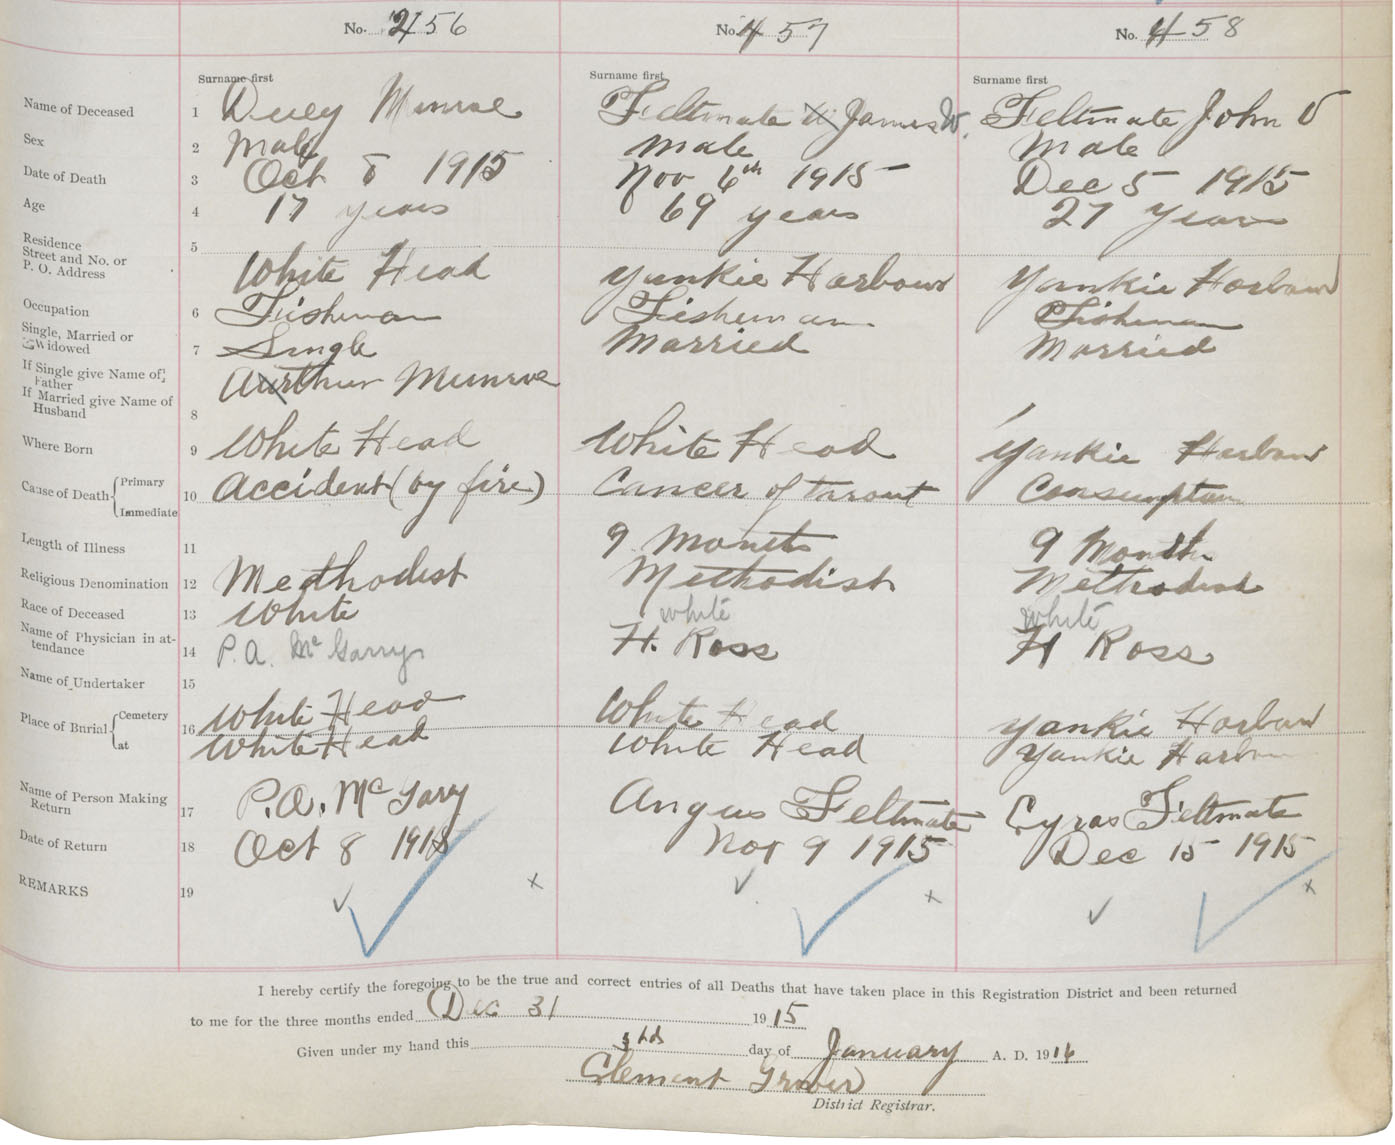 No. 456 No. 457 No. 458
Surname first Surname first Surname first
Name of Deceased 1 Duey Munroe Feltmate James W. Feltmate John V
Sex 2 Male Male Male
Date of Death 3 Oct 8 1915 Nov 6th 1915 Dec 5 1915
Age 4 17 years 69 years 27 years
Residence
Street and No. or
P. O. Address 5 White Head Yankie Harbour Yankie Harbour
Occupation 6 Fisherman Fisherman Fisherman
Single, Married or
Widowed 7 Single Married Married
If Single give Name of
Father Aurthur Munroe
If Married give Name of
Husband 8
Where Born 9 White Head White Head Yankie Harbour
Cause of Death Primary 10 Accident (by fire) Cancer of trout Consumption
Immediate
Length of Illness 11 9 Months 9 Months
Religious Denomination 12 Methodist Methodist Methodist
Race of Deceased 13 White White White
Name of Physician in at-
tendance 14 P.A. McGarry H. Ross H Ross
Name of Undertaker 15
Place of Burial Cemetery 16 White Head White Head Yankie Harbour
at White Head White Head Yankie Harbour
Name of Person Making
Return 17 P.A. McGarry Angus Feltmate Cyras Feltmate
Date of Return 18 Oct 8 1915 Nov 9 1915 Dec 15 1915
REMARKS 19
I hereby certify the foregoing to be the true and correct entries of all Deaths that have taken place in this Registration District and been returned
to me for the three months ended Dec 31 1915
Given under my hand this day of January A. D. 1916
Clement
District Registrar.